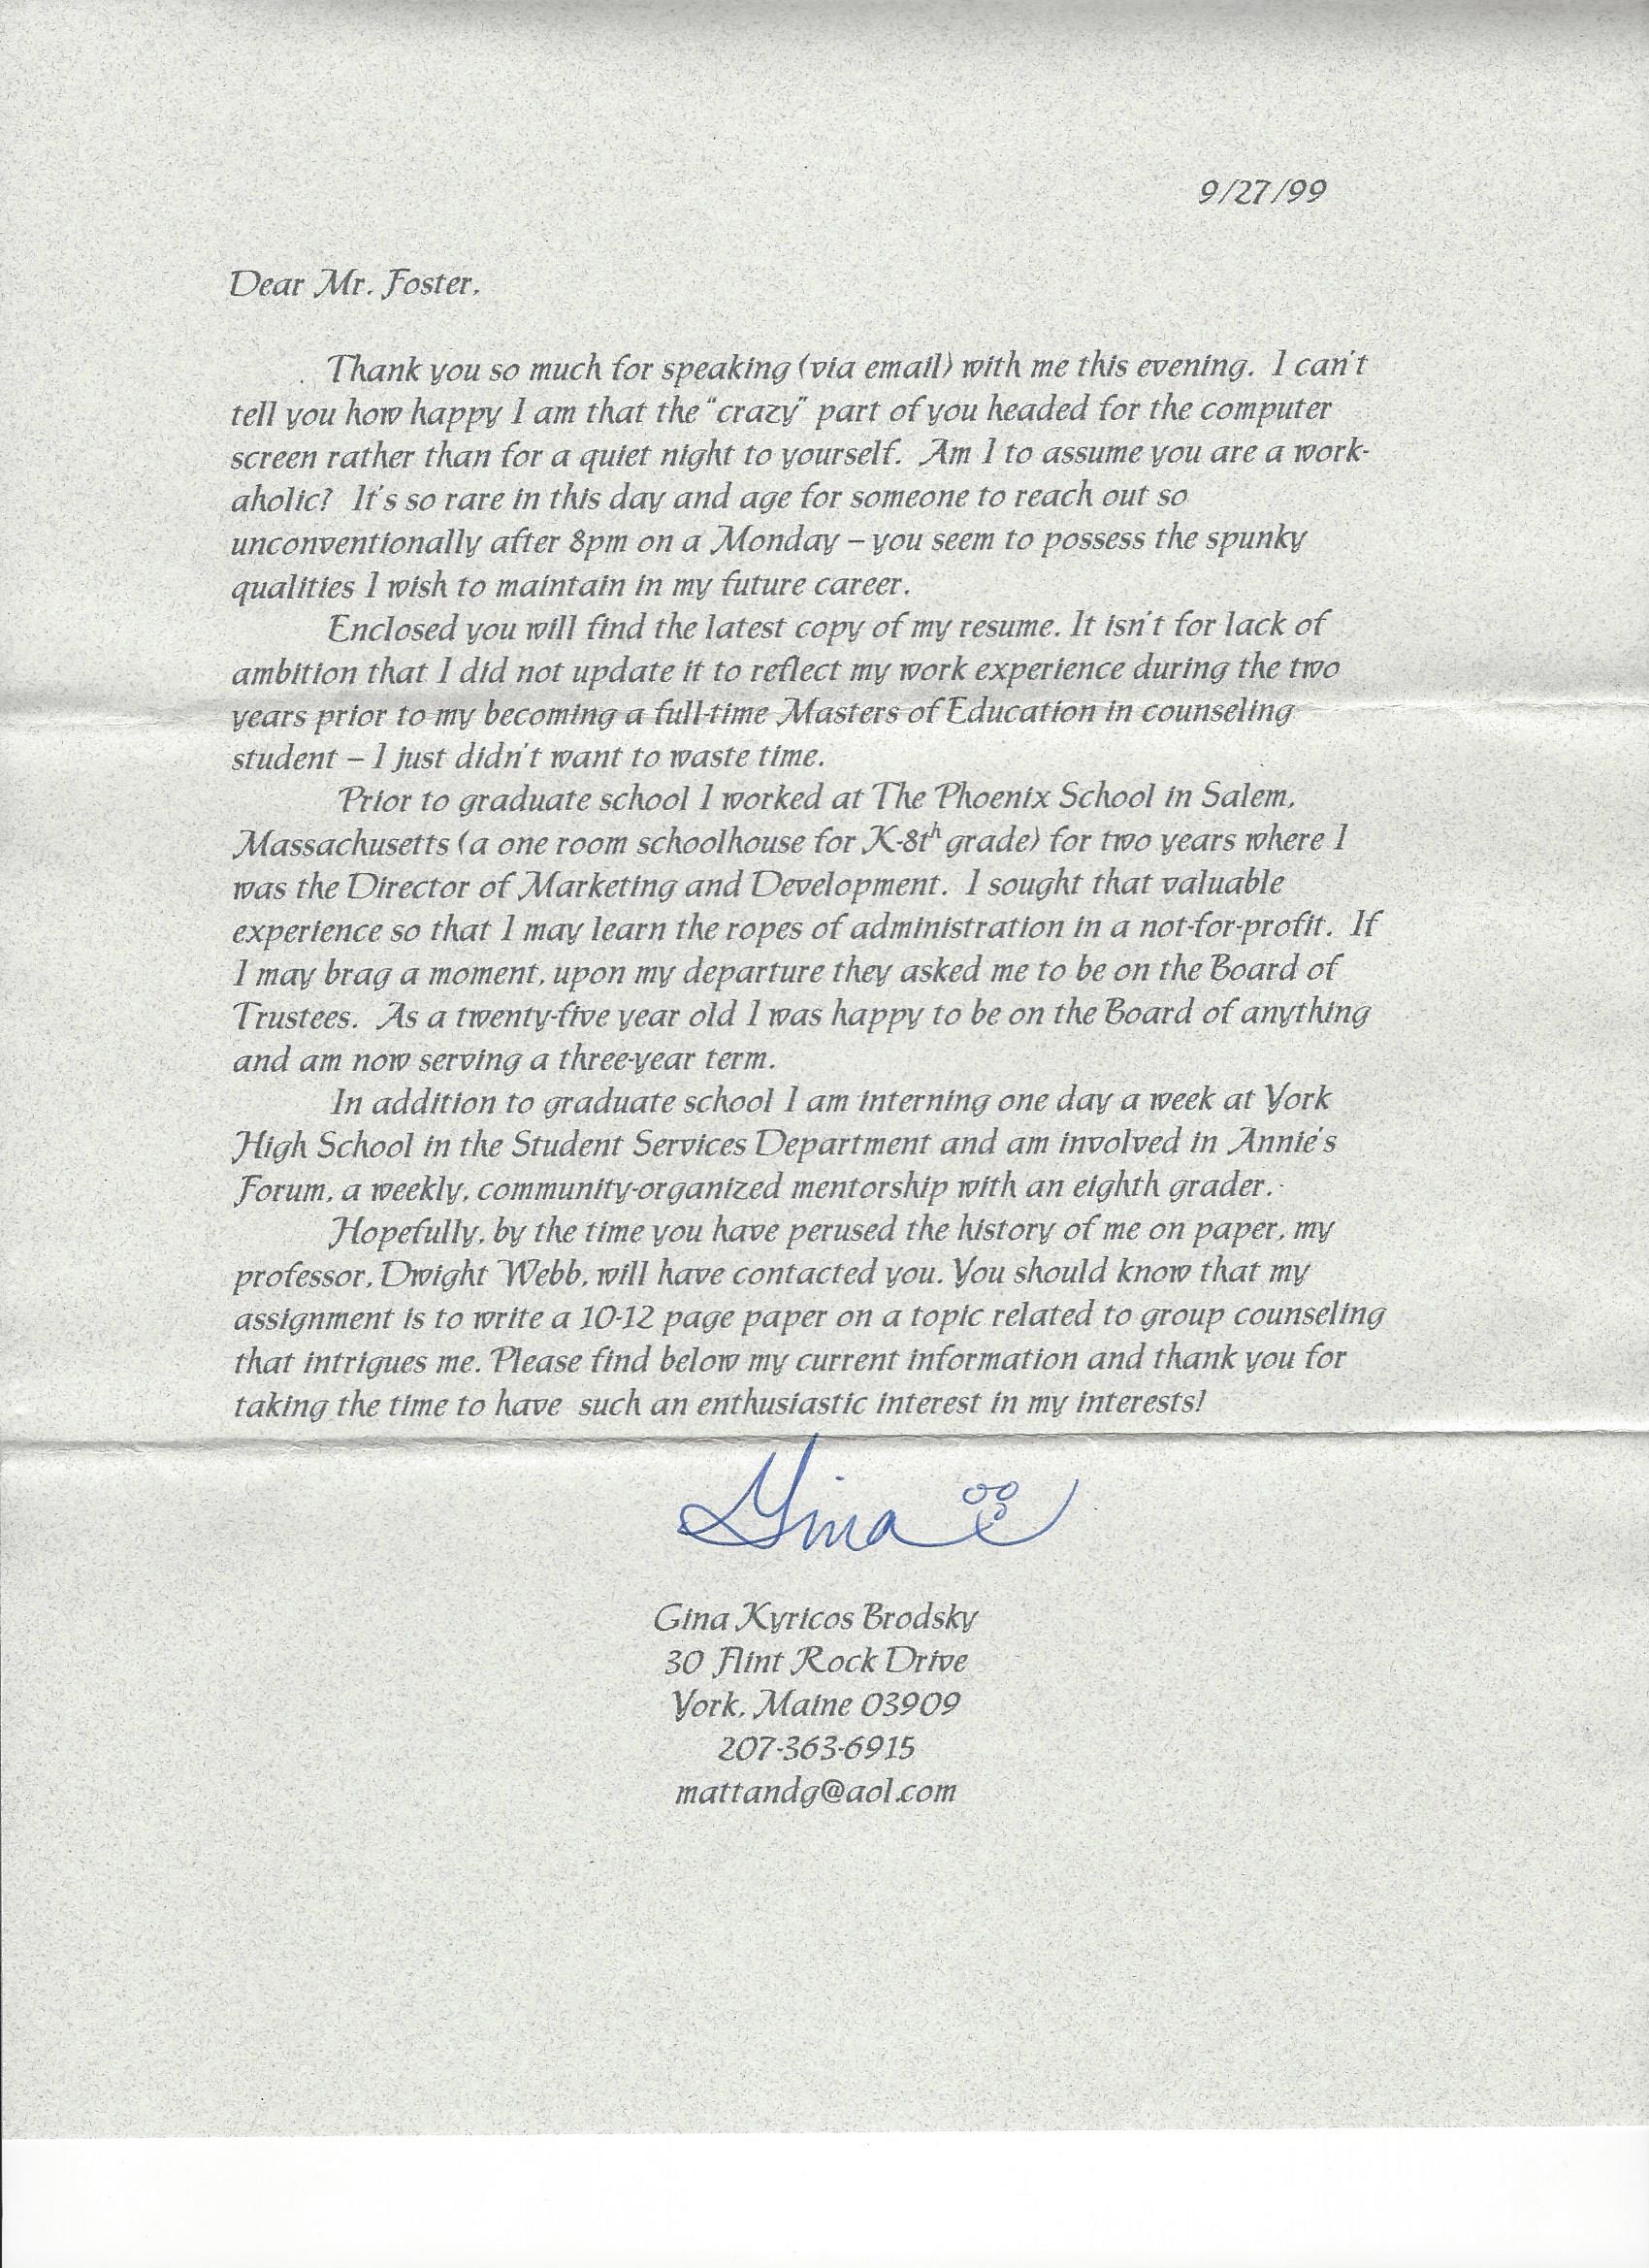 9/27/99
Dear Mr. Foster,
Thank you so much for speaking (via email) with me this evening.  I can't
tell you how happy I am that the "crazy" part of you headed for the computer
screen rather than for a quiet night to yourself.  Am I to assume you are a work-
aholic?  It's so rare in this day and age for someone to reach out so
unconventionally after 8pm on a Monday – you seem to possess the spunky
qualities I wish to maintain in my future career.
Enclosed you will find the latest copy of my resume. It isn't for lack of
ambition that I did not update it to reflect my work experience during the two
years prior to my becoming a full-time Masters of Education in counseling
student – I just didn't want to waste time.
Prior to graduate school I worked at The Phoenix School in Salem,
Massachusetts (a one room schoolhouse for K-8th grade) for two years where I
was the Director of Marketing and Development.  I sought that valuable
experience so that I may learn the ropes of administration in a not-for-profit.  If
I may brag a moment, upon my departure they asked me to be on the Board of
Trustees.  As a twenty-five year old I was happy to be on the Board of anything
and am now serving a three-year term.
In addition to graduate school I am interning one day a week at York
High School in the Student Services Department and am involved in Annie's
Forum, a weekly, community-organized mentorship with an eighth grader.
Hopefully, by the time you have perused the history of me on paper, my
professor, Dwight Webb, will have contacted you. You should know that my
assignment is to write a 10-12 page paper on a topic related to group counseling
that intrigues me. Please find below my current information and thank you for
taking the time to have  such an enthusiastic interest in my interests!
Gina
Gina Kyricos Brodsky
30 Flint Rock Drive
York, Maine 03909
207-363-6915
mattandg@aol.com